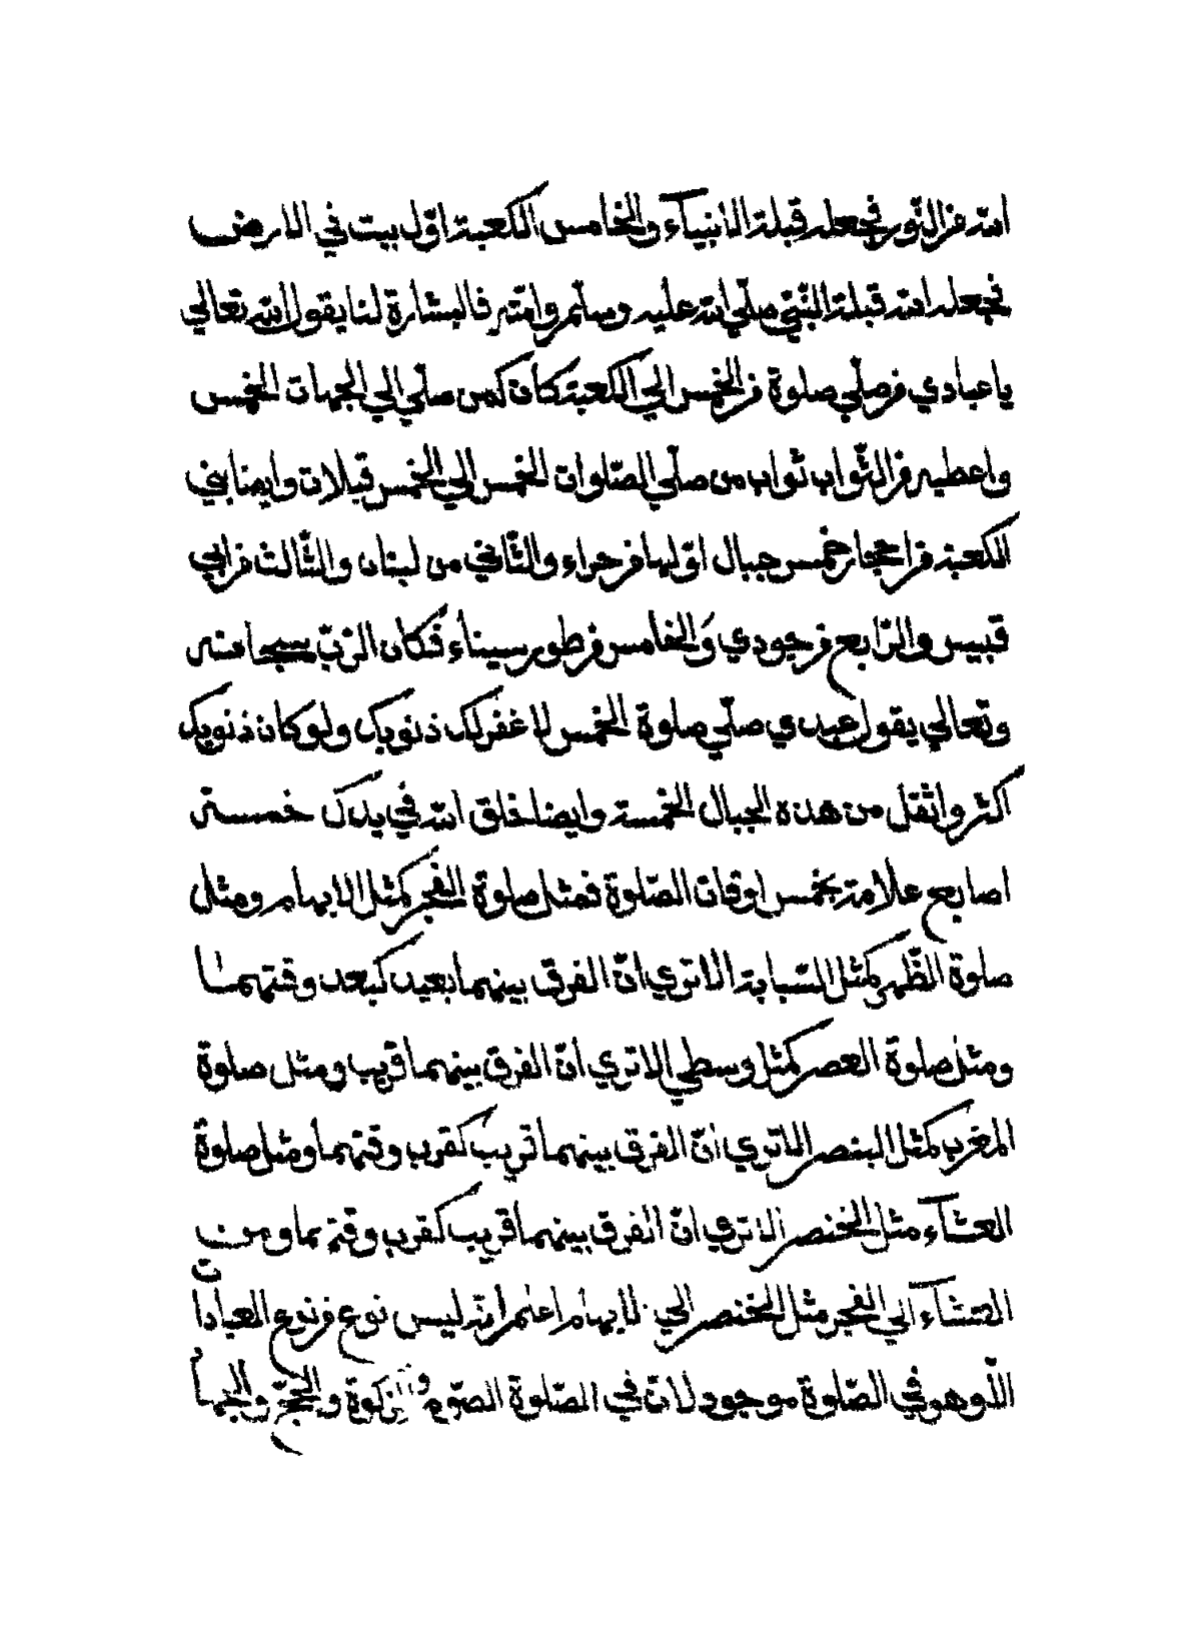 الله من النّور فجعله قبلة الانبيآء والخامس الكعبة اوّل بيت في الارض
فجعله الله قبلة النّبيّ صلّي الله عليه وسلّم وامّته فالبشارة لنا يقول الله تعالي
يا عبادي من صلّي صلوة من الخمس الي الكعبة كان كمن صلّي الي الجهات الخمس
واعطيه من الثّواب ثواب من صلّي الصّلوات الخمس الي الخمس قبلات وايضا بني
الكعبة من احجار خمس جبال اوّلها من حراء والثّاني من لبنان والثّالث من ابي
قبيس والرّابع من جودي وَالخامس من طور سيناء فكان الرّبّ سبحانه
وتعالي يقول عبدي صلّي صلوة الخمس لاغفرلك ذنوبك ولوكان ذنوبك
اكثر واثقل من هذه الجبال الخمسة وايضا خلق الله في يدك خمسة
اصابع علامة بخمس اوقات الصّلوة فمثل صلوة الفجر كمثل الابهام ومثل
صلوة الظّهر كمثل السّبابة الا تري انّ الفرق بينهما بعيد كبعد وقتهما
ومثل صلوة العصر كمثل وسطي الا تري انّ الفرق بينهما قريب ومثل صلوة
المغرب كمثل البنصر الا تري انّ الفرق بينهما قريب كقرب وقتهما ومثل صلوة
العشآء مثل الخنصر الا تري انّ الفرق بينهما قريب كقرب وقتهما ومن
العشآء الي الفجر مثل الخنصر الي الابهام اعلم انّه ليس نوع من نوع العبادات
الّا وهو في الصّلوة موجود لانّ في الصّلوة الصّوم والزكوة والحجّ والجها